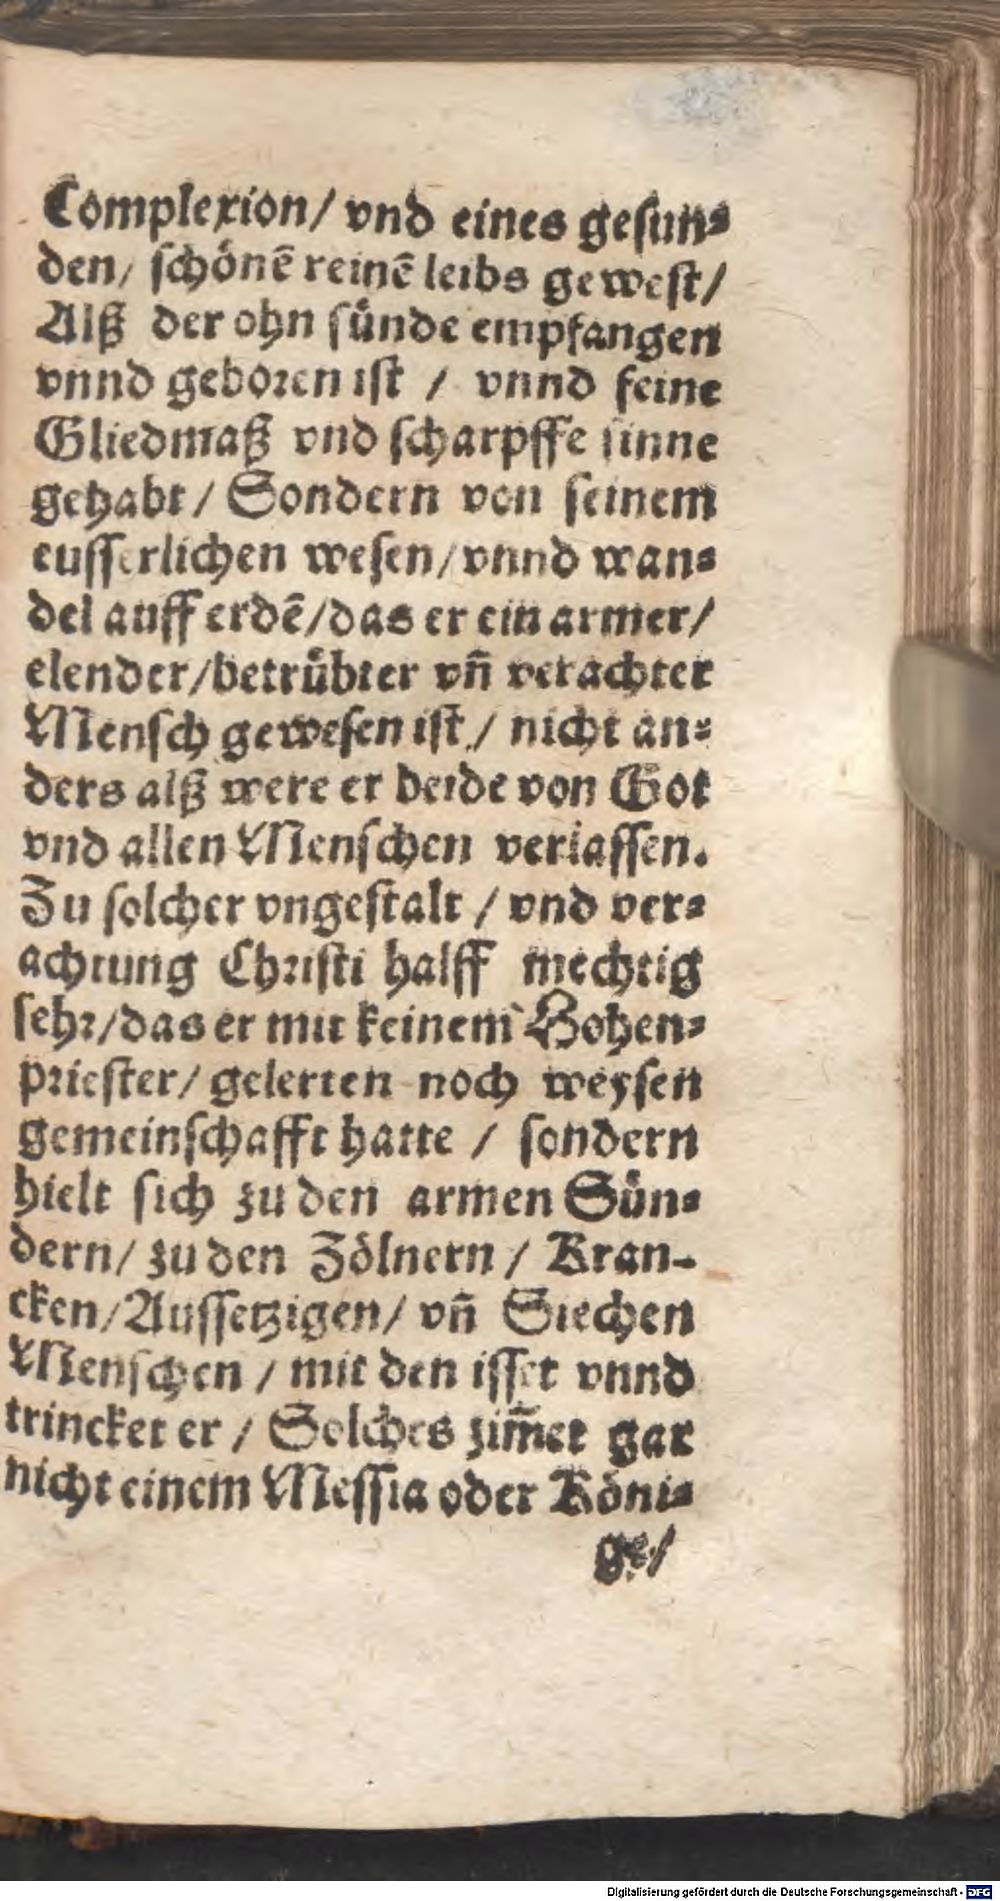 Complexion/ vnd eines gesun⸗
den/ schönē reinē leibs gewest/
Alß der ohn sünde empfangen
vnnd geboren ist / vnnd feine
Gliedmaß vnd scharpffe sinne
gehabt/ Sondern von seinem
eusserlichen wesen/vnnd wan⸗
del auff erdē/das er ein armer/
elender/betrübter vn̄ verachter
Mensch gewesen ist / nicht an⸗
ders alß were er beide von Got
vnd allen Menschen verlassen.
Zu solcher vngestalt / vnd ver⸗
achtung Christi halff mechtig
sehr/das er mit keinem Hohen⸗
priester/ gelerten noch weysen
gemeinschafft hatte / sondern
hielt sich zu den armen Sün⸗
dern/ zu den Zölnern / Kran-
cken/Aussetzigen/ vn̄ Siechen
Menschen / mit den isset vnnd
trincket er / Solches zim̄et gar
nicht einem Messia oder Köni⸗
ge/
Digitalisierung gefördert durch die Deutsche Forschungsgemeinschaft - DFG